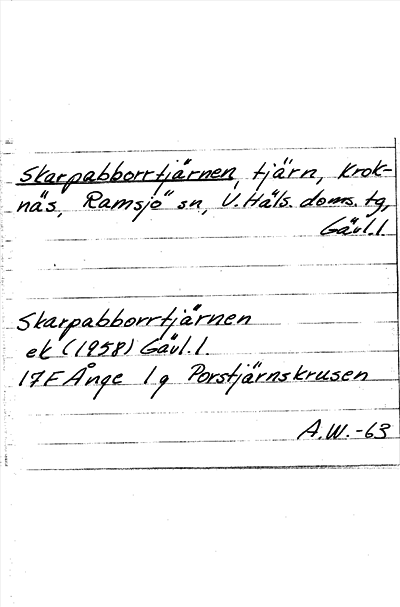 Skarpabborrtjärnen, tjärn, Krok-
näs, Ramsjö sn, V. Häls. doms. tg,
Gävl. l.
Skarpabborrtjärnen
ek (1958) Gävl. l.
17F Ånge 1g Porstjärnskrusen
A.W.-63